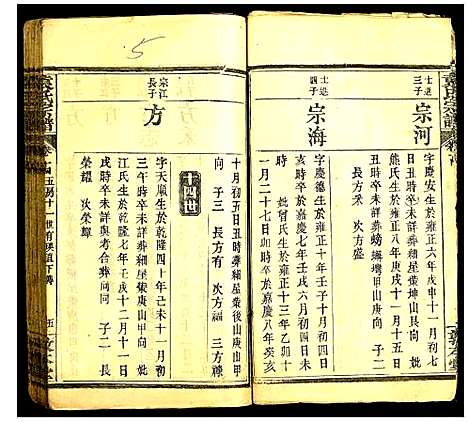 袁氏宗譜
士達
三子
宗河
字慶安生於雍正六年戊申十一月初七
日丑時卒未詳葬細星螢坤山艮向 妣
熊氏生於雍正八年庚戌十一月十五日
時卒未詳葬螃 壪甲山庚向 子二
長方來 次方盛
士達
四子
宗海
字慶德生於雍正十年壬子十月初四日
亥時卒於嘉慶九年甲子十一月初四日
妣曾氏生於雍正十三年乙卯
一月二十七日亥時卒於嘉慶八年癸亥
十月初五日丑時葬細星螢後山庚山甲
向 子三 長方有 次方福 三方祿
十四世
宗江
長子
方
字天順生於乾隆四年己未十一月初
三午時卒未詳葬細星螢庚山甲向 妣
江氏生於乾隆七年壬戌十二月十一日
戌時卒未詳與考合葬同向 子二 長
榮耀 次榮輝
袁氏宗譜
五
5